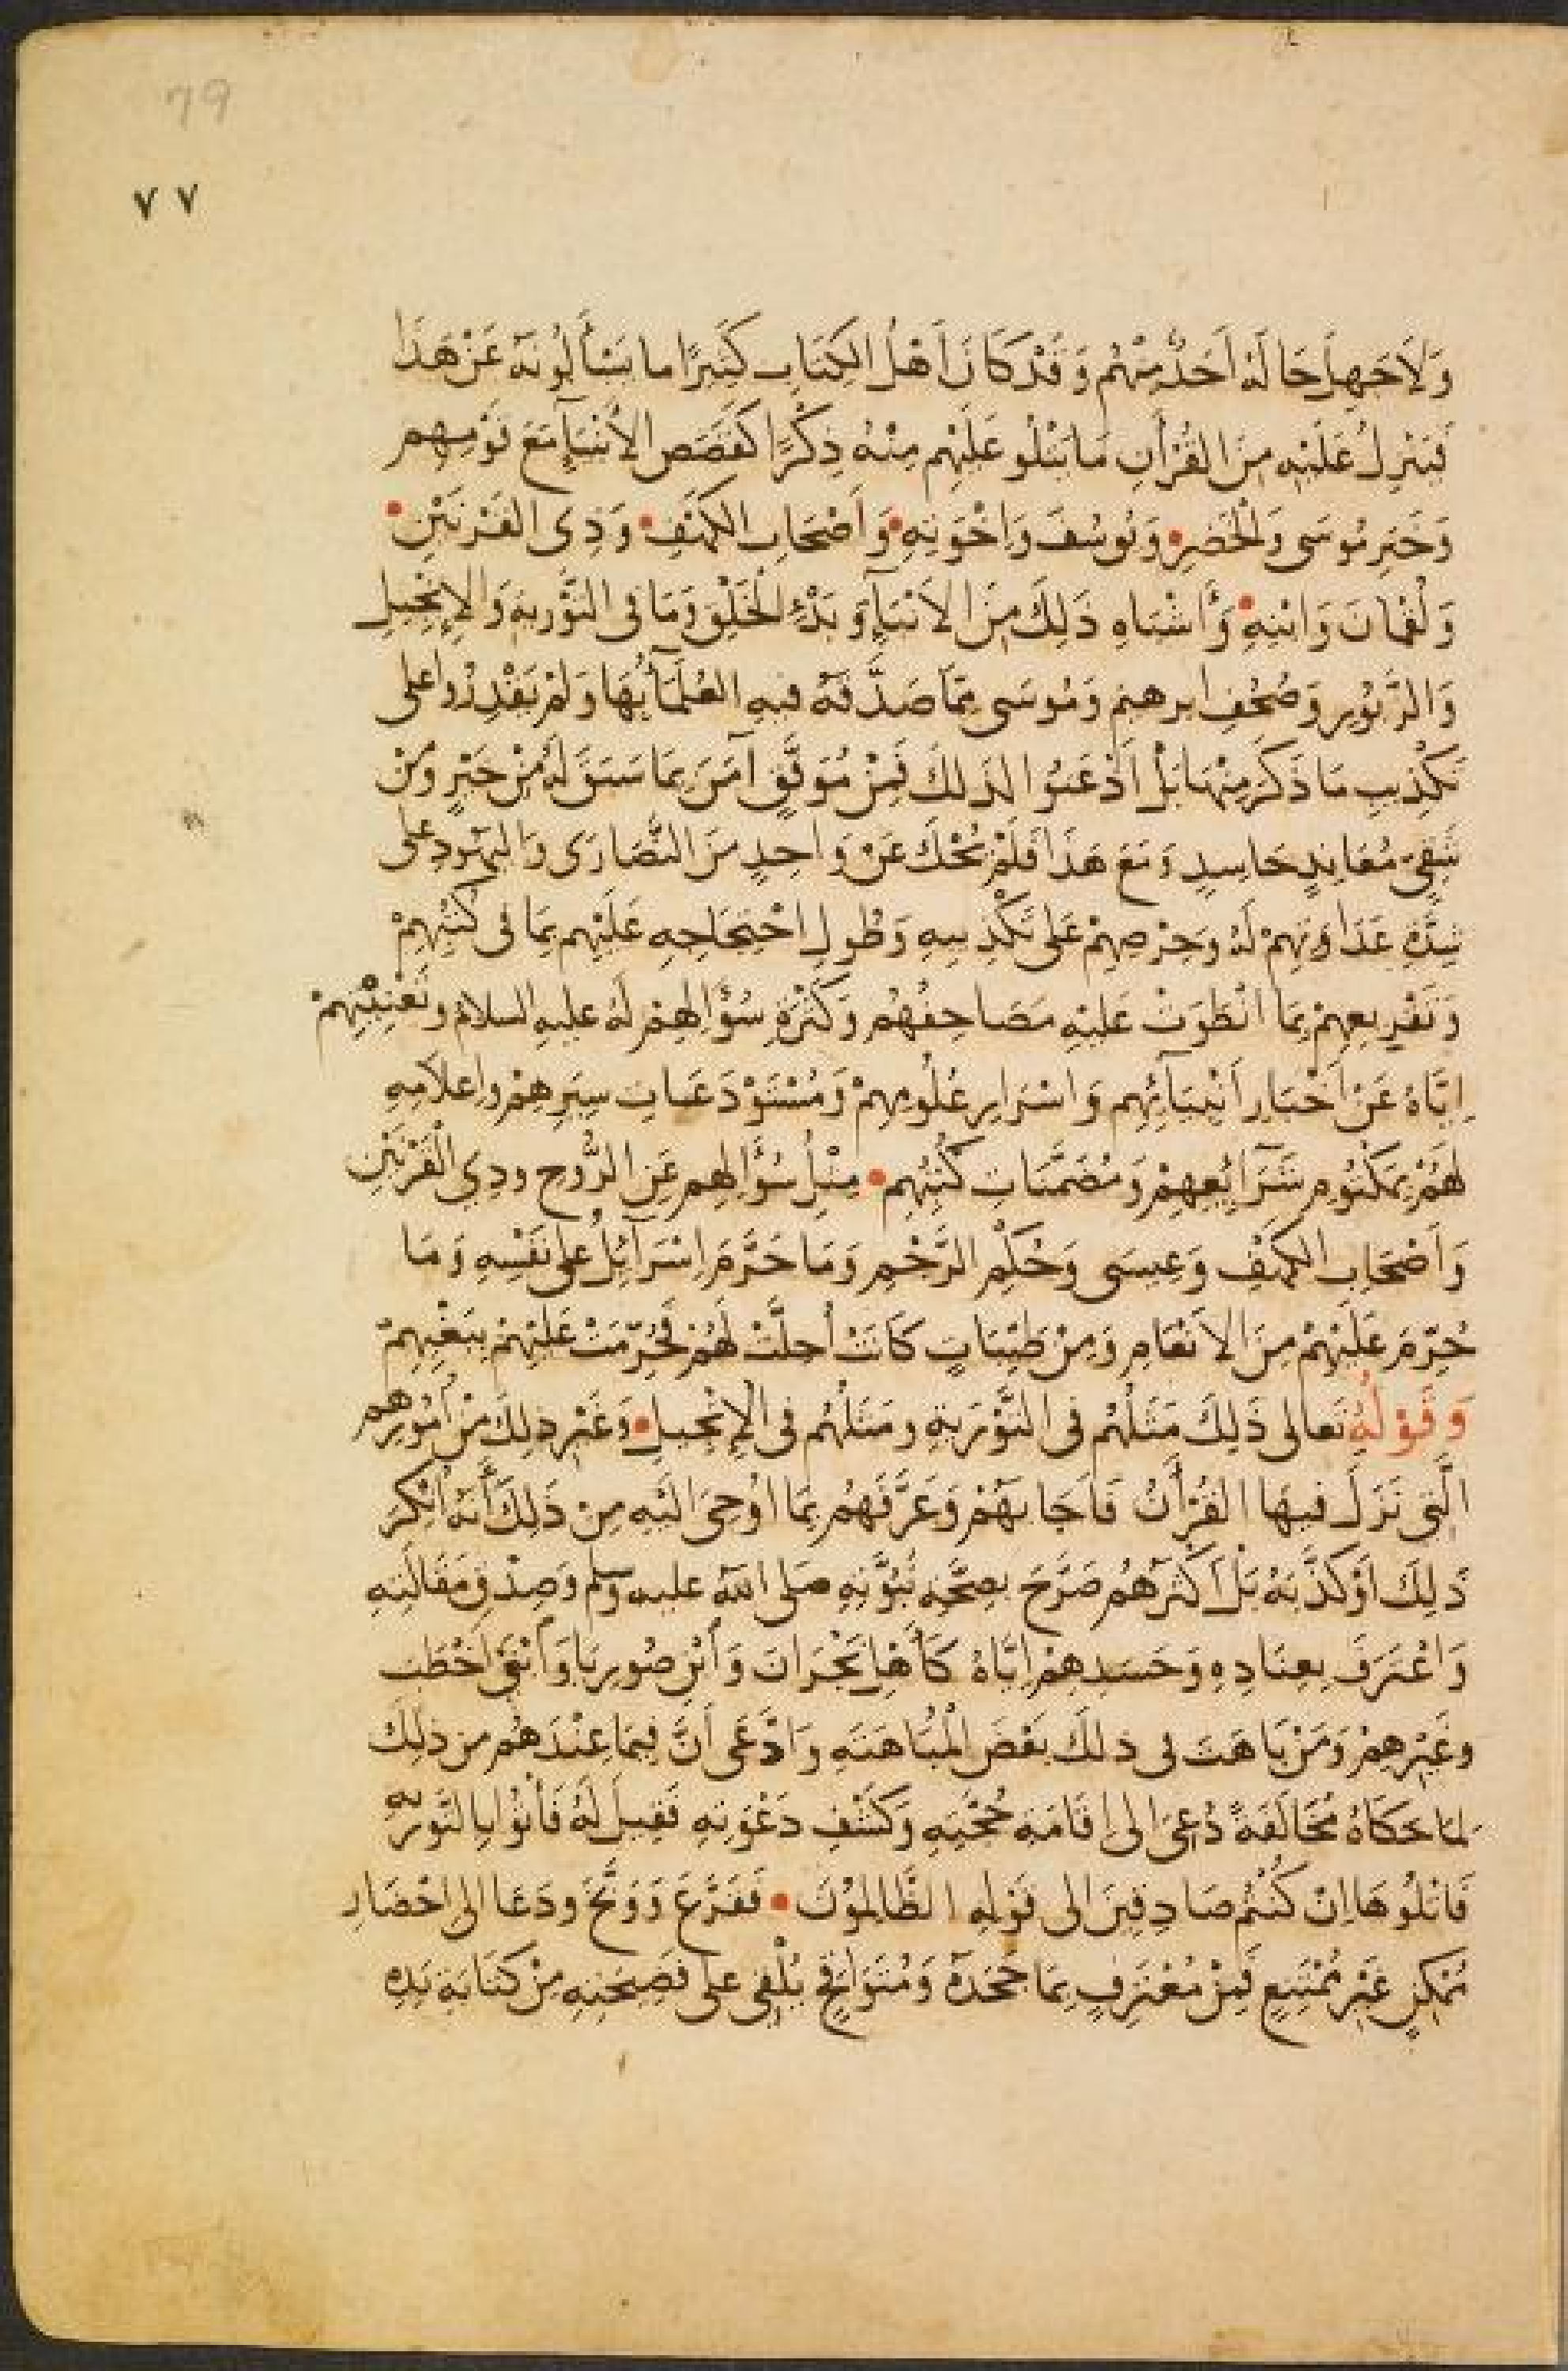 79
٧٧
وَلَا جَهِلَ حَالَهُ اَحَدٌ مِنْهُمْ وَقَدْ كَانَ اَهْلُ الكِتَابِ كَثِيرًا ما يَسْأَلُونَهُ عَنْ هَذَا
فَيَنْزِلُ عَلَيْهِ مِنَ القُرْآنِ مَا يَتْلُو عَلَيْهِم مِنْهُ ذِكْرًا كَقَصَصِ الأَنْبِيَآءِ مَعَ قَوْمِهِم
وَخَبَرِ مُوسَى وَالْخَضِرِ • وَيُوسُفَ وَاِخْوَتِهِ • وَاَصْحَابِ الكَهْفِ • وَذِى القَرْنَيْنِ •
وَلُقْمَانَ وَابْنِهِ • وَأَشْبَاهِ ذَلِكَ مِنَ الاَنْبَآءِ وَبَدْءِ الْخَلْقِ وَمَا فى التَّوْرٰيةِ وَالإِنْجِيلِ
وَالزَّبُورِ وَصُحُفِ ابرهيم وَمُوسَى مِمَّا صَدَّقَهُ فيهِ العُلَمَآءُ بِهَا وَلَمْ يَقْدِرُوا على
تَكْذِيبِ مَا ذَكَرَ مِنْهَا بَلْ اَذْعَنُوا لِذَلكَ فَمِنْ مُوَفَّقٍ آمَنَ بِمَا سَبَقَ لَهُ مِنْ خَيْرٍ وَمِنْ
شَقِىٍّ مُعَانِدٍ حَاسِدٍ وَمَعَ هَذَا فَلَمْ يُحْكَ عَنْ وَاحِدٍ مِنَ النَّصَارَى وَاليَهُودِ على
شِدَّةِ عَدَاوَتِهِمْ لَهُ وَحِرْصِهِمْ عَلى تَكْذِيبِهِ وَطُولِ احْتِجَاجِهِ عَلَيْهِم بِمَا فى كُتُبِهِمْ
وَتَقْرِيعِهِمْ بِمَا انْطَوَتْ عَلَيْهِ مَصَاحِفُهُمْ وَكَثْرَةِ سُؤَالِهِمْ لَهُ عليهِ السلام وَتَعْنِيتِهِمْ
اِيَّاهُ عَنْ اَخْبَارِ أَنْبِيَآئِهِم وَاَسْرَارِ عُلُومِهِمْ وَمُسْتَوْدَعَاتِ سِيَرِهِمْ وإعلامِهِ
لَهُمْ بِمَكْتُومِ شَرَآئِعِهِمْ وَمُضَمَّنَاتِ كُتُبِهِم • مِثْلِ سُؤَالِهِم عَنِ الرُّوحِ وذِي الْقَرْنَيْنِ
وَاَصْحَابِ الكَهْفِ وَعِيسَى وَحُكْمِ الرَّجْمِ وَمَا حَرَّمَ اِسْرَآئِلُ على نَفْسِهِ وَمَا
حُرِّمَ عَلَيْهِمْ مِنَ الاَنْعَامِ وَمِنْ طَيِّبَاتٍ كَانَتْ أُحِلَّتْ لَهُمْ فَحُرِّمَتْ عَلَيْهِمْ بِبَغْيِهِمْ
وَقَوْلُهُ تَعالى ذَلِكَ مَثَلُهُم فى التَّوْرٰيةِ ومَثَلُهُم فى الإِنْجِيلِ • وَغَيْرِ ذلِكَ مِنْ اُمُورِهِم
الَّتِى نَزَلَ فيهَا القُرْآنُ فَاَجَابَهُمْ وَعَرَّفَهُم بِمَا اُوْحِىَ اِلَيْهِ مِن ذَلِكَ أَنَّهُ اَنْكَرَ
ذَلِكَ اَوْ كَذَّبَهُ بَلْ اَكْثَرُهُمْ صَرَّحَ بِصِحَّةِ نُبُوَّتِهِ صلى الله عليه وسلم وَصِدْقِ مَقَالَتِهِ
وَاعْتَرَفَ بِعِنَادِهِ وَحَسَدِهِمْ اِيَّاهُ كَأَهْلِ نَجْرَانَ وَابْنِ صُورِيَا وَابْنَىْ اَخْطَبَ
وغَيْرِهِمْ وَمَنْ بَاهَتَ فى ذلكَ بَعْضَ الْمُبَاهَتَةِ وَادَّعَى أَنَّ فِيمَا عِنْدَهُمْ من ذلِكَ
لِمَا حَكَاهُ مُخَالَفَةً دُعِىَ الى اِقَامَةِ حُجَّتِهِ وَكَشْفِ دَعْوَتِهِ فَقِيلَ لَهُ فَأْتُوْا بِالتَّوْرٰيةِ
فَاتْلُوهَا اِنْ كُنْتُمْ صَادِقِينَ الى قَوْلِهِ الظَّالِمُوْنَ • فَقَرَّعَ وَوَبَّخَ ودَعَا الى اِحْضَارِ
مُمْكِنٍ غَيْرِ مُمْتَنِعٍ فَمِنْ مُعْتَرِفٍ بِمَا جَحَدَهُ وَمُتَوَاقِحٍ يُلْقِى على فَضِيحَتِهِ مِنْ كِتَابِهِ يَدِهِ